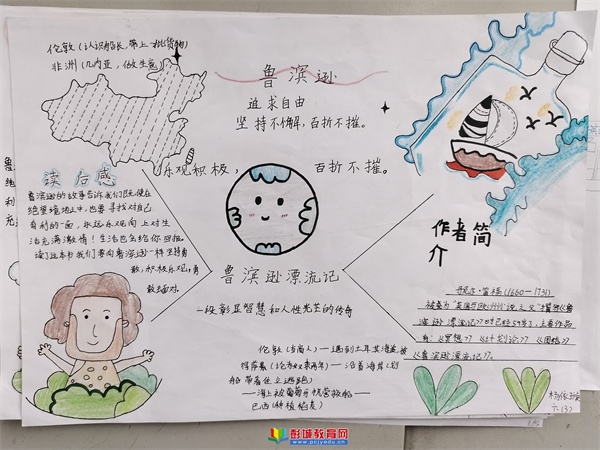 伦敦(认识船长,带上一批货物)
非洲(几内亚,做生意)
鲁滨逊
追求自由
坚持不懈,百折不摧。
乐观积极,
百折不摧。
读后感
鲁滨逊的故事告诉我们既使在
绝望境地之中,也要寻找对自己
有利的一面,永远乐观向上对生
活充满激情!生活也会给你回报。
读了这本书我们要向鲁滨逊一样坚持勇
敢,积极乐观,勇
敢去面对。
鲁滨逊漂流记
一段彰显智慧和人性光芒的传奇
作者简
介
丹尼尔·笛福(1660—1731)
被誉为"英国与欧洲小说之父"撰写《鲁
滨逊漂流记》时已经59岁了,主要作品
有:
《鲁滨逊漂流记》。
伦敦(当商人)—遇到土耳其海盗被
—沿着海岸(划
船带着佐立逃跑)
—海上被葡萄牙
巴西(种植
六(3)
彭城教育网
www.pcjyedu.cn